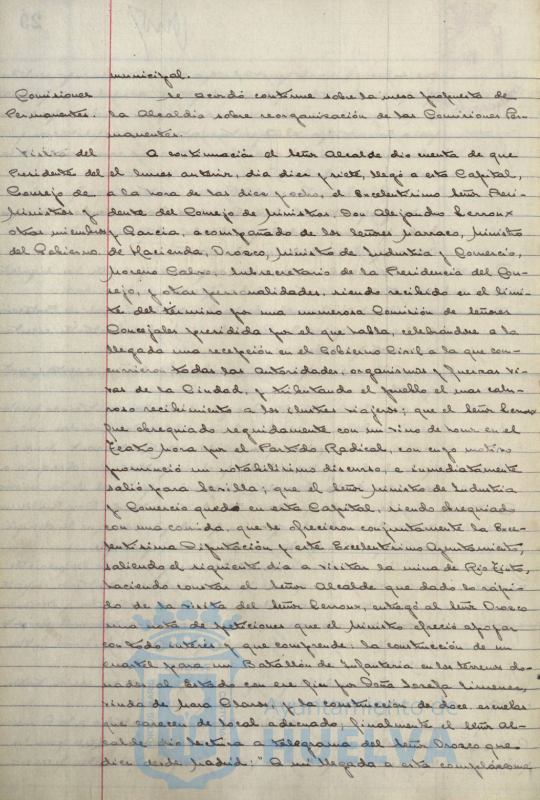 municipal.
Comisiones
Permanentes.
Se acordó conforme sobre la mesa propuesta de
la Alcaldía sobre reorganización de las Comisiones Per-
manentes.
Visita del
Presidente del
Consejo de
Ministros y
otros miembros
del Gobierno.
A continuación el Señor Alcalde dio cuenta de que
el lunes anterior, día diez y siete, llegó a esta Capital,
a la hora de las diez y ocho, el Excelentísimo Señor Presi-
dente del Consejo de Ministros, Don Alejandro Lerroux
y García, acompañado de los Señores Marraco, Ministro
de Hacienda, Orozco, Ministro de Industria y Comercio,
Moreno Calvo, Subsecretario de la Presidencia del Con-
sejo, y otras personalidades, siendo recibido en el lími-
te del término por una numerosa Comisión de Señores
Concejales presidida por el que habla, celebrándose a la
llegada una recepción en el Gobierno Civil a la que con-
currieron todas las Autoridades, organismos y fuerzas vi-
vas de la Ciudad, y tributando el pueblo el mas calu-
roso recibimiento a los ilustres viajeros; que el Señor Lerroux
fue obsequiado seguidamente con un vino de honor en el
Teatro Mora por el Partido Radical, con cuyo motivo
pronunció un notabilísimo discurso, e inmediatamente
salió para Sevilla; que el Señor Ministro de Industria
y Comercio quedó en esta Capital, siendo obsequiado
con una comida, que le ofrecieron conjuntamente la Exce-
lentísima Diputación y este Excelentísimo Ayuntamiento,
saliendo el siguiente día a visitar la mina de Rio Tinto,
haciendo constar el Señor Alcalde que dado lo rápi-
do de la visita del Señor Lerroux, entregó al Señor Orozco
una nota de peticiones que el Ministro ofreció apoyar
con todo interés y que comprende: la construcción de un
cuartel para un Batallón de Infantería en los terrenos do-
nados al Estado con ese fin por Doña Josefa Jimenez,
viuda de Mora Claros, y la construcción de doce escuelas
que carecen de local adecuado; finalmente el Señor Al-
calde dio lectura a telegrama del Señor Orozco que
dice desde Madrid: "A mi llegada a esta complázcome
Ayuntamiento de
HUELVA